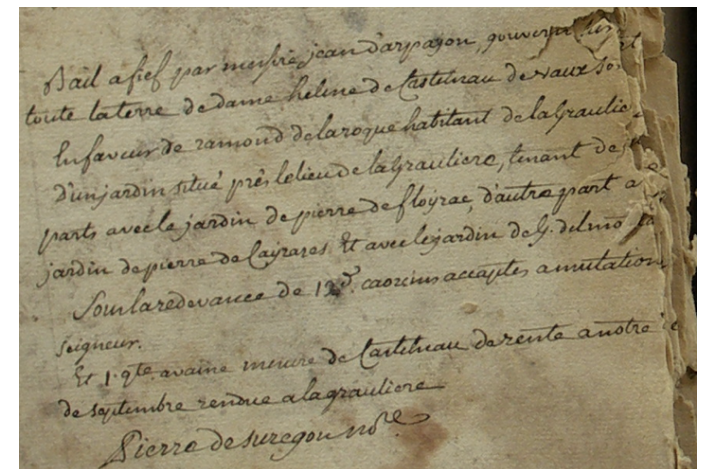 Bail a fief par messire jean d'arpajon, gouverneur
toute la terre de dame helene de Castelnau de vaux
En faveur de ramond de laroque habitant de lagraulie
D'un jardin situé près le lieu de la grauliere, tenant de
parts avec le jardin de pierre de floyrac, d'autre part a
jardin de pierre de Cayrares Et avec le jardin de G. delmo
Sous la redevance de 12d. caorcins accaptes a mutation
seigneur.
Et 1. qte. avaine mesure de Castelnau de rente a notre
de septembre rendue a la grauliere
Pierre de suregou nore.